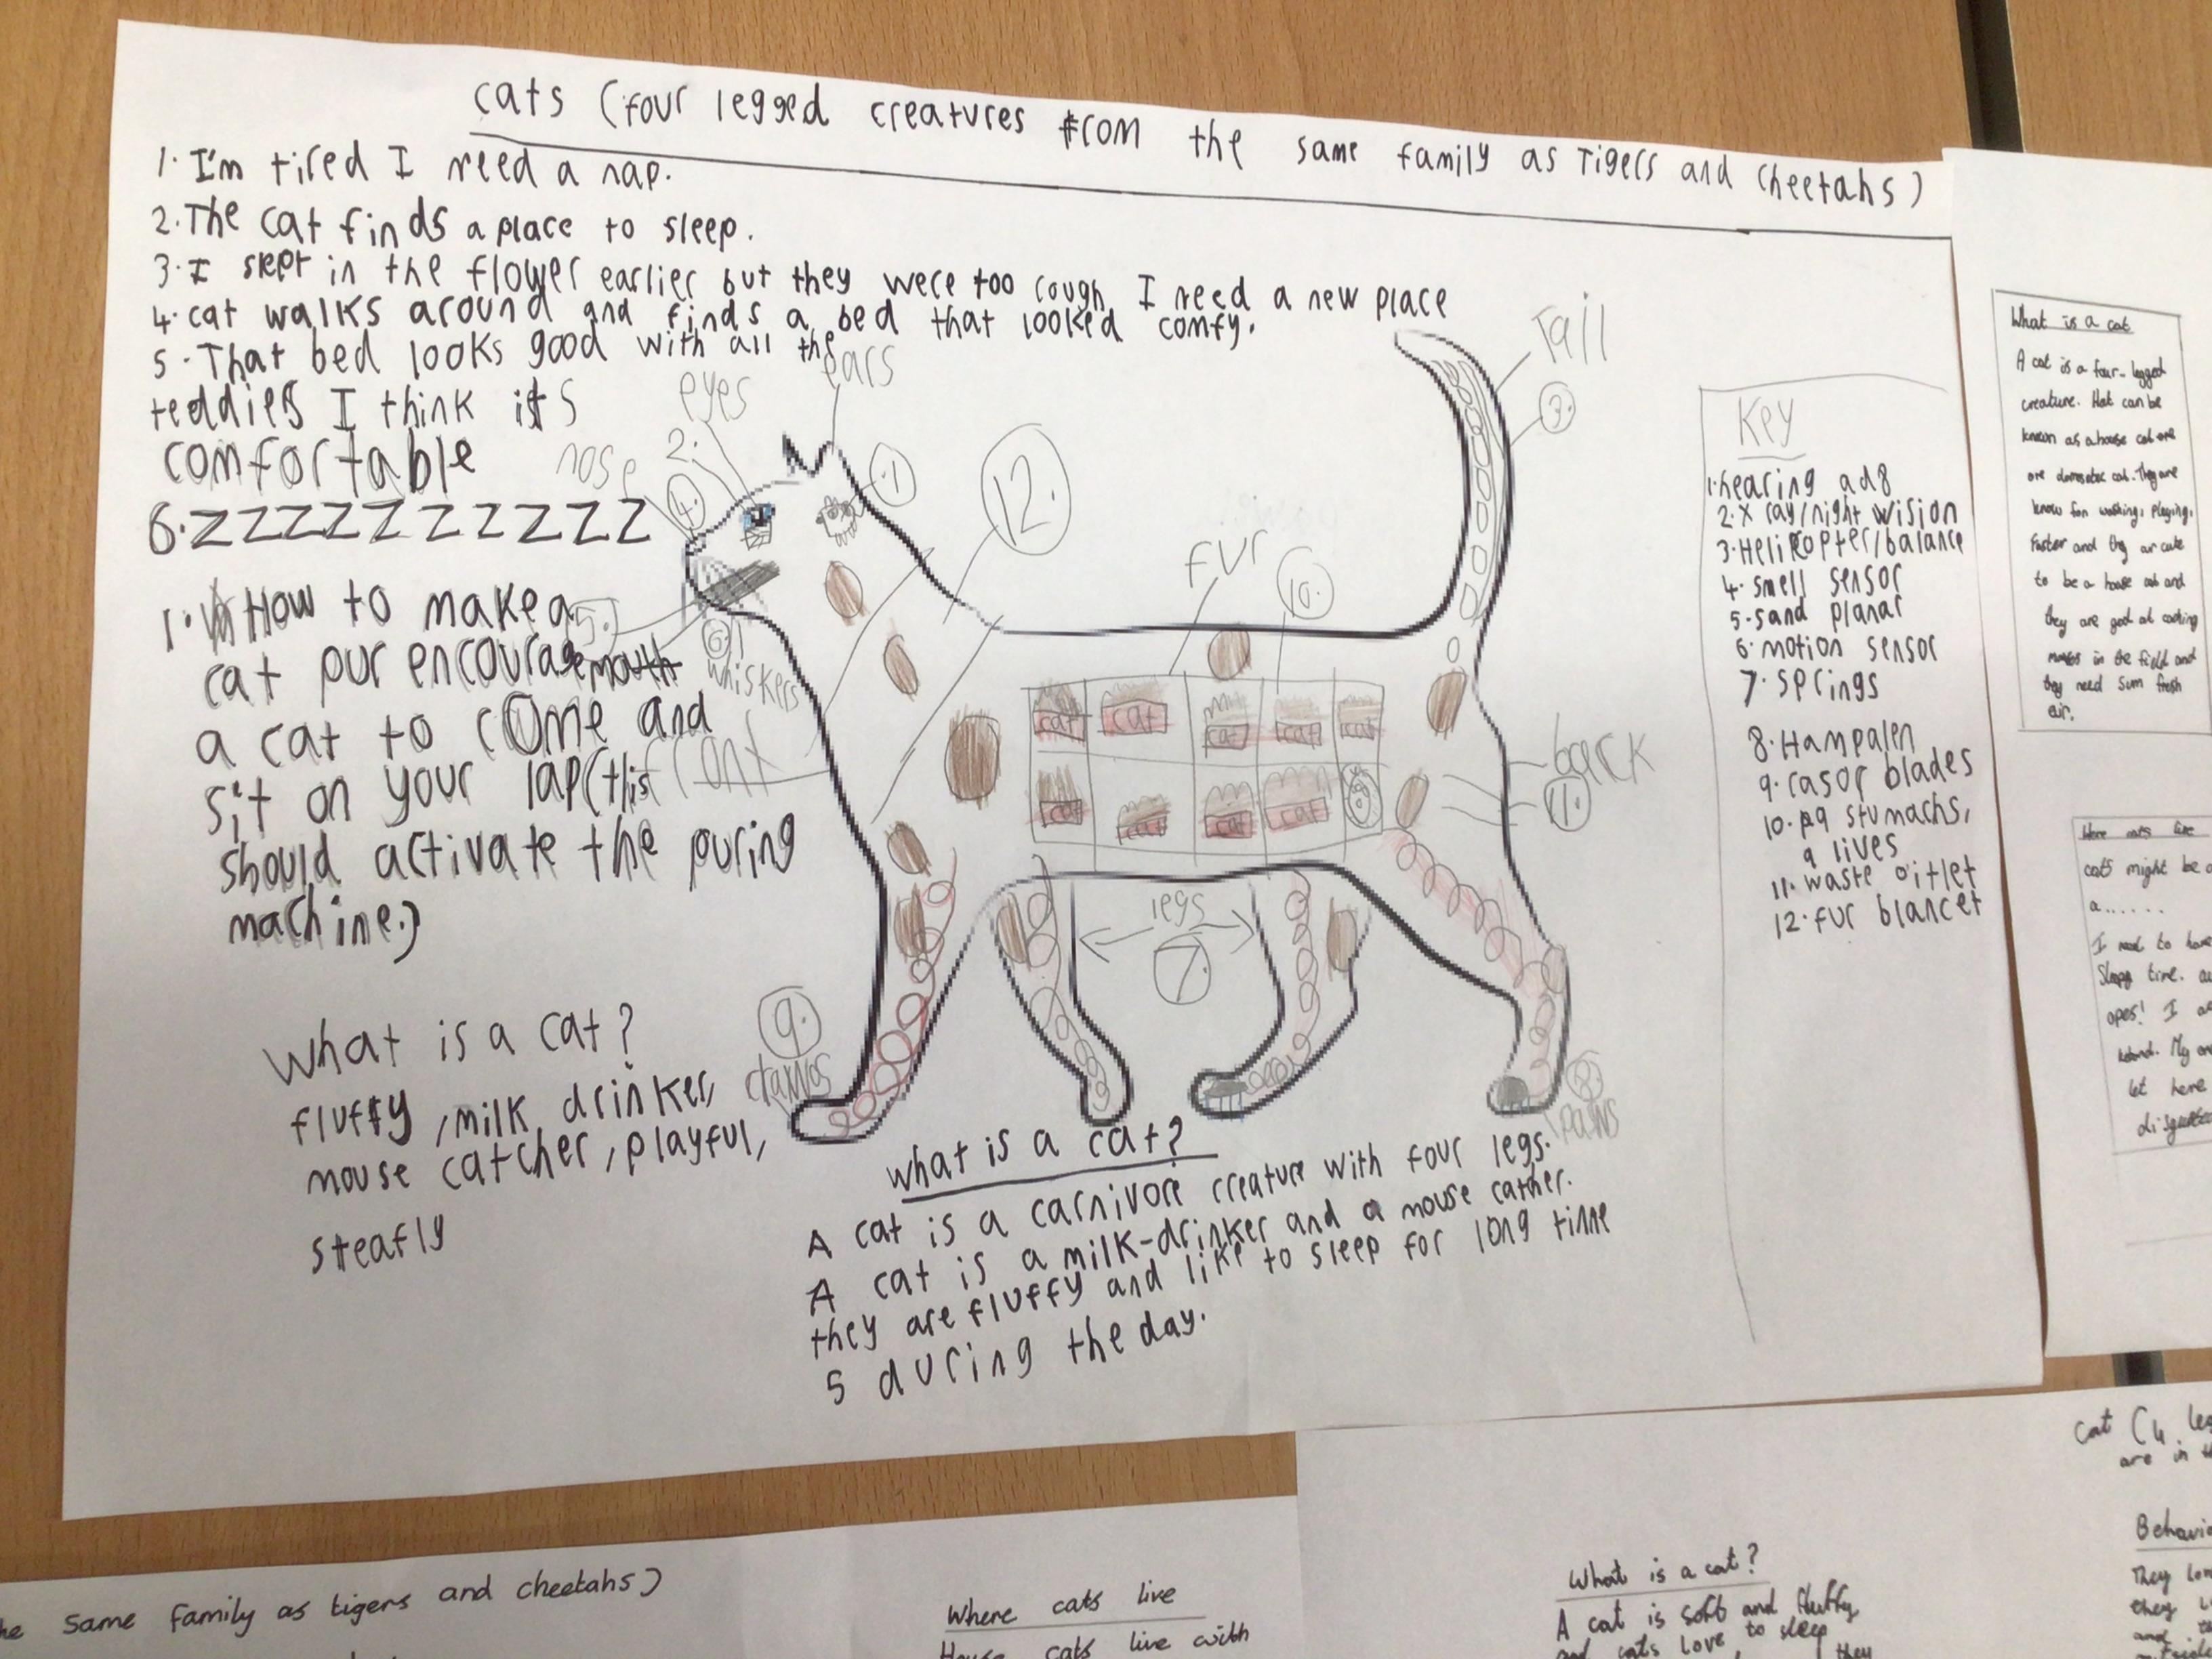 cats (four legged creatures from the same family as Tigers and cheetahs)
1. I'm tired I need a nap.
2. The cat finds a place to sleep.
3. I slept in the flower earlier but they were too rough I need a new place
4. cat walks around and finds a bed that looked comfy.
5. That bed looks good with all the
teddies I think its
comfortable
6. ZZZZZZZZZZZ
1. How to make a
cat pur encourage
a cat to come and
sit on your lap (this
should activate the puring
machine.)
What is a cat?
fluffy, milk drinker,
mouse catcher, playful,
steafly
eyes
2.
ears
1.
nose
4.
12.
5.
mouth
6.
whiskers
front
fur
10.
Tail
3.
back
11.
cat cat cat cat cat
cat cat cat cat
legs
7.
9.
clawos
8.
paws
what is a cat?
A cat is a carnivore creature with four legs.
A cat is a milk-drinker and a mouse cather.
they are fluffy and like to sleep for long time
s during the day.
Key
1. hearing ad8
2. X ray/night wision
3. Helicopter/balance
4. smell sensor
5. sand planar
6. motion sensor
7. springs
8. Hampalen
9. rasor blades
10. 9 stumachs,
9 lives
11. waste oitlet
12. fur blancet
What is a cat
A cat is a four-legged
creature. that can be
known as a house cat
are domestic cat. They are
know for washing, playing,
Faster and thy ar cute
to be a house cat and
they are good at
in the field and
they need sum fresh
air.
Here cats live
cats might be
a......
I need to have
time.
opes! I
My
let here
he same family as tigers and cheetahs)
Where cats live
House cats live with
What is a cat?
A cat is soft and fluffy
and cats love to sleep
they
cat (4 leg
are in th
Behavio
They lov
they
and